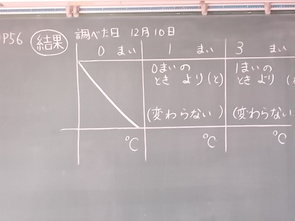 P56 結果 調べた日 12月10日
0 まい 1 まい 3 まい
0まいの 1まいの
ときより(と) ときより(
(変わらない) (変わらない
℃ ℃ ℃